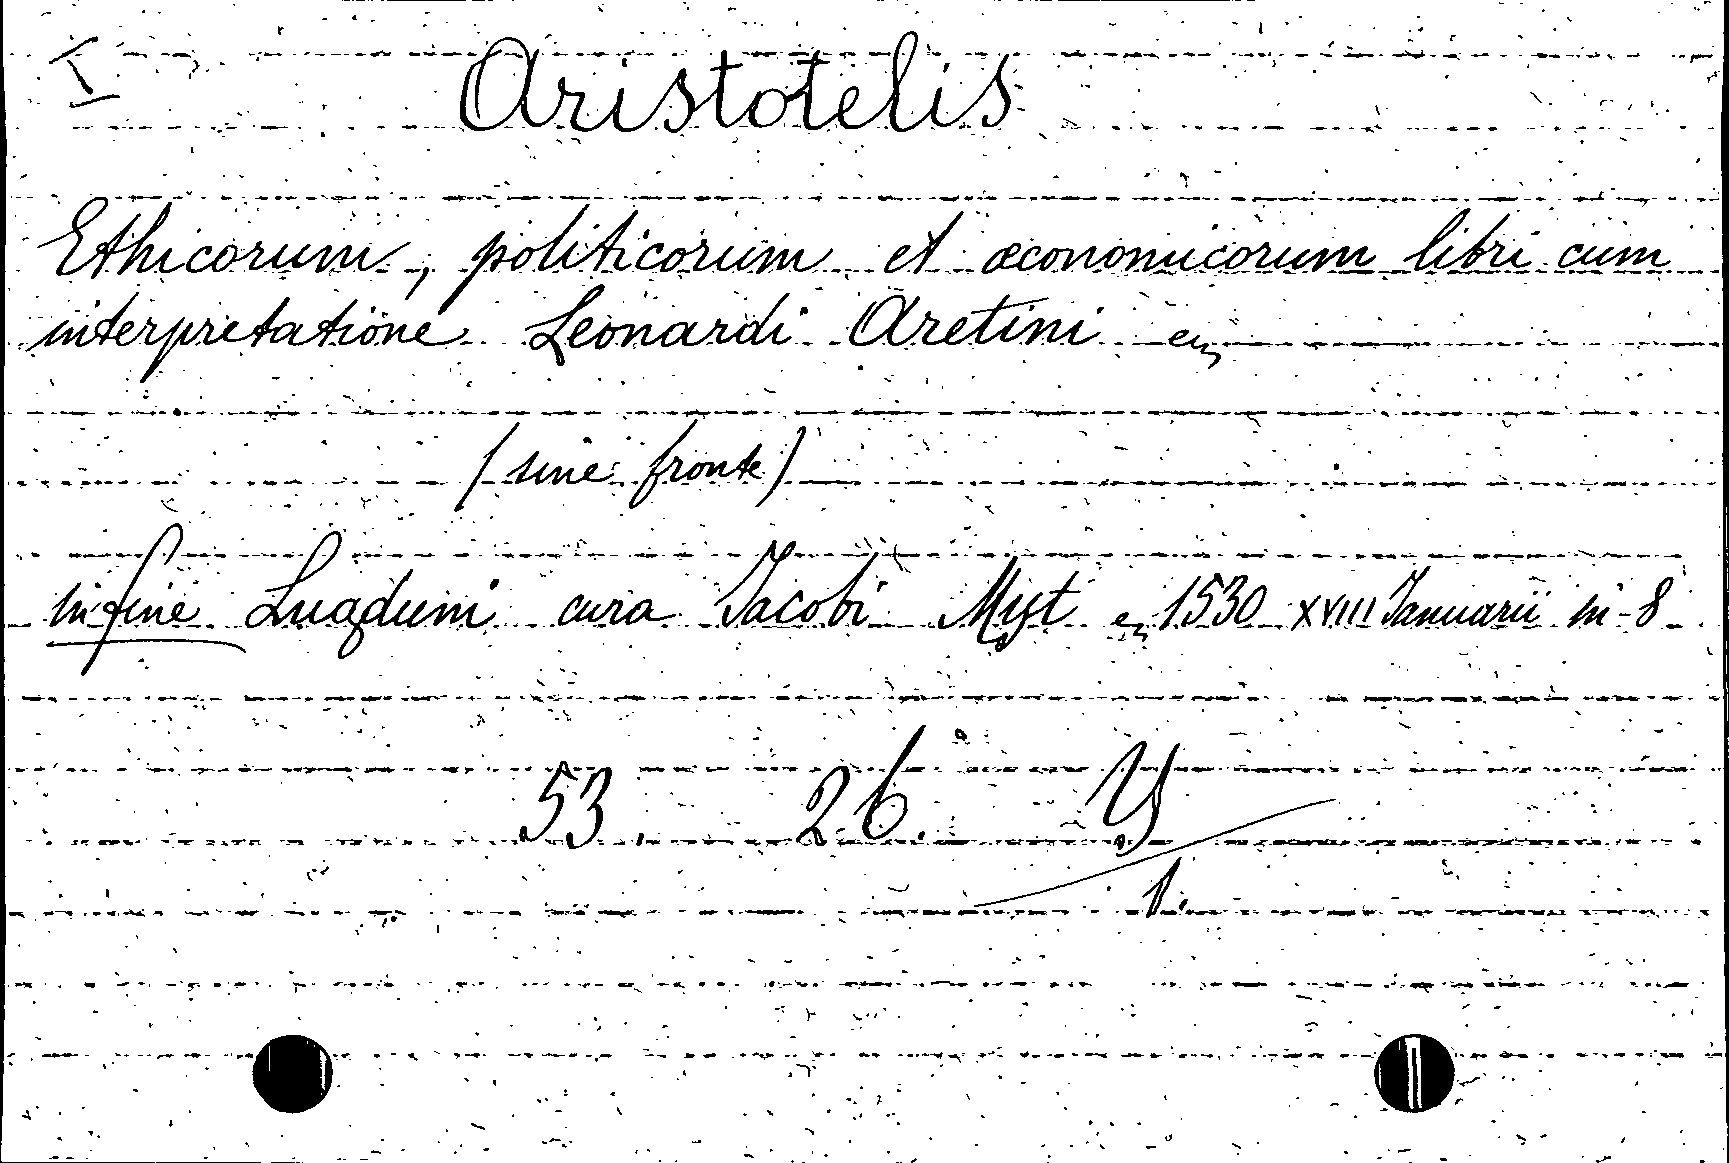 I
Aristotelis
Ethicorum, politicorum et œconomicorum libri cum
interpretatione Leonardi Aretini
(sine fronte)
in fine Lugduni cura Jacobi Myt 1530 XVIII Januarii in-8
53. 26. Y
1.